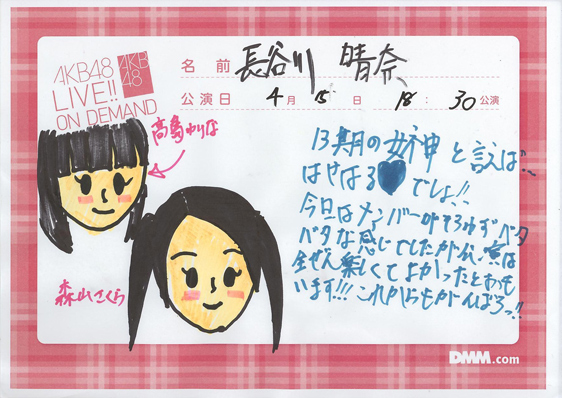 AKB48
LIVE!!
ON DEMAND
AKB
48
名前 長谷川 晴奈
公演日 4月 15日 18:30 公演
高島ゆりな
森山さくら
13期の女神と言えば…
はせはる♥でしょ!!
今日はメンバーがそろわずベタ
ベタな感じでしたが
全ぜん楽しくてよかったとおも
います!!! これからもがんばろっ!!
DMM.com